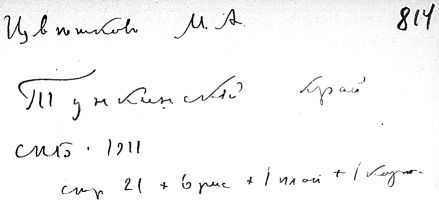 Цветков М. А. 814
Тункинский край
СПБ. 1911
стр 21 + 6 рис + 1 план + 1 карт.